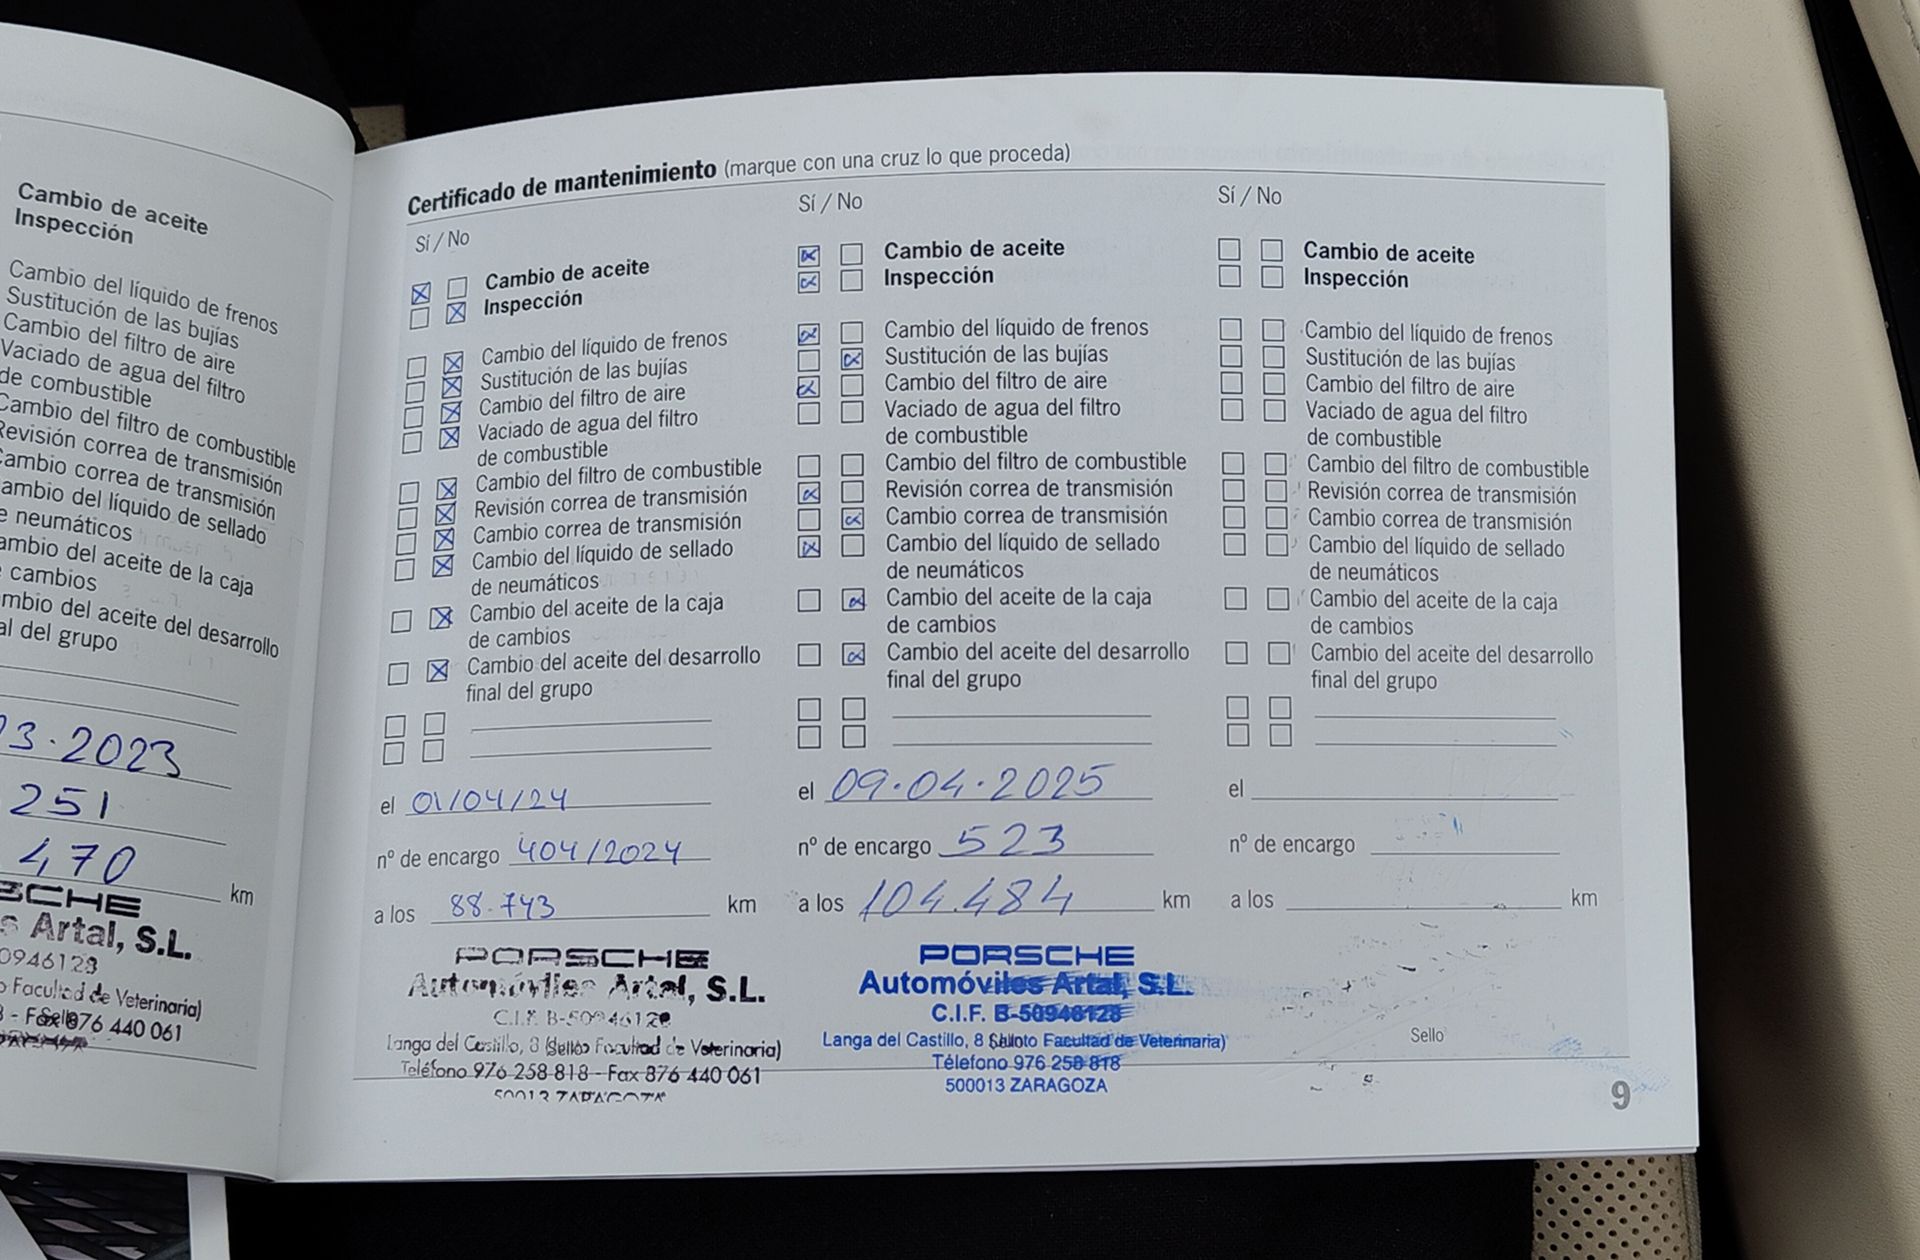 Cambio de aceite
Inspección
Cambio del líquido de frenos
Sustitución de las bujías
Cambio del filtro de aire
Vaciado de agua del filtro
de combustible
Cambio del filtro de combustible
Revisión correa de transmisión
Cambio correa de transmisión
ambio del líquido de sellado
e neumáticos
ambio del aceite de la caja
cambios
mbio del aceite del desarrollo
al del grupo
3.2023
251
470
km
SCHE
s Artal, S.L.
0946128
Facultad de Veterinaria)
Sello
- Fax 876 440 061
Certificado de mantenimiento (marque con una cruz lo que proceda)
Sí / No
Cambio de aceite
Inspección
Cambio del líquido de frenos
Sustitución de las bujías
Cambio del filtro de aire
Vaciado de agua del filtro
de combustible
Cambio del filtro de combustible
Revisión correa de transmisión
Cambio correa de transmisión
Cambio del líquido de sellado
de neumáticos
Cambio del aceite de la caja
de cambios
Cambio del aceite del desarrollo
final del grupo
el 01/04/24
nº de encargo 404/2024
a los 88.743 km
PORSCHE
Automóviles Artal, S.L.
C.I.F. B-50946128
Langa del Castillo, 8 (Sello Facultad de Veterinaria)
Teléfono 976 258 818 - Fax 876 440 061
50013 ZARAGOZA
Sí / No
Cambio de aceite
Inspección
Cambio del líquido de frenos
Sustitución de las bujías
Cambio del filtro de aire
Vaciado de agua del filtro
de combustible
Cambio del filtro de combustible
Revisión correa de transmisión
Cambio correa de transmisión
Cambio del líquido de sellado
de neumáticos
Cambio del aceite de la caja
de cambios
Cambio del aceite del desarrollo
final del grupo
el 09.04.2025
nº de encargo 523
a los 104.484 km
PORSCHE
Automóviles Artal, S.L.
C.I.F. B-50946128
Langa del Castillo, 8 Facultad de Veterinaria)
Télefono 976 258 818
500013 ZARAGOZA
Sí / No
Cambio de aceite
Inspección
Cambio del líquido de frenos
Sustitución de las bujías
Cambio del filtro de aire
Vaciado de agua del filtro
de combustible
Cambio del filtro de combustible
Revisión correa de transmisión
Cambio correa de transmisión
Cambio del líquido de sellado
de neumáticos
Cambio del aceite de la caja
de cambios
Cambio del aceite del desarrollo
final del grupo
el
nº de encargo
a los km
Sello
9